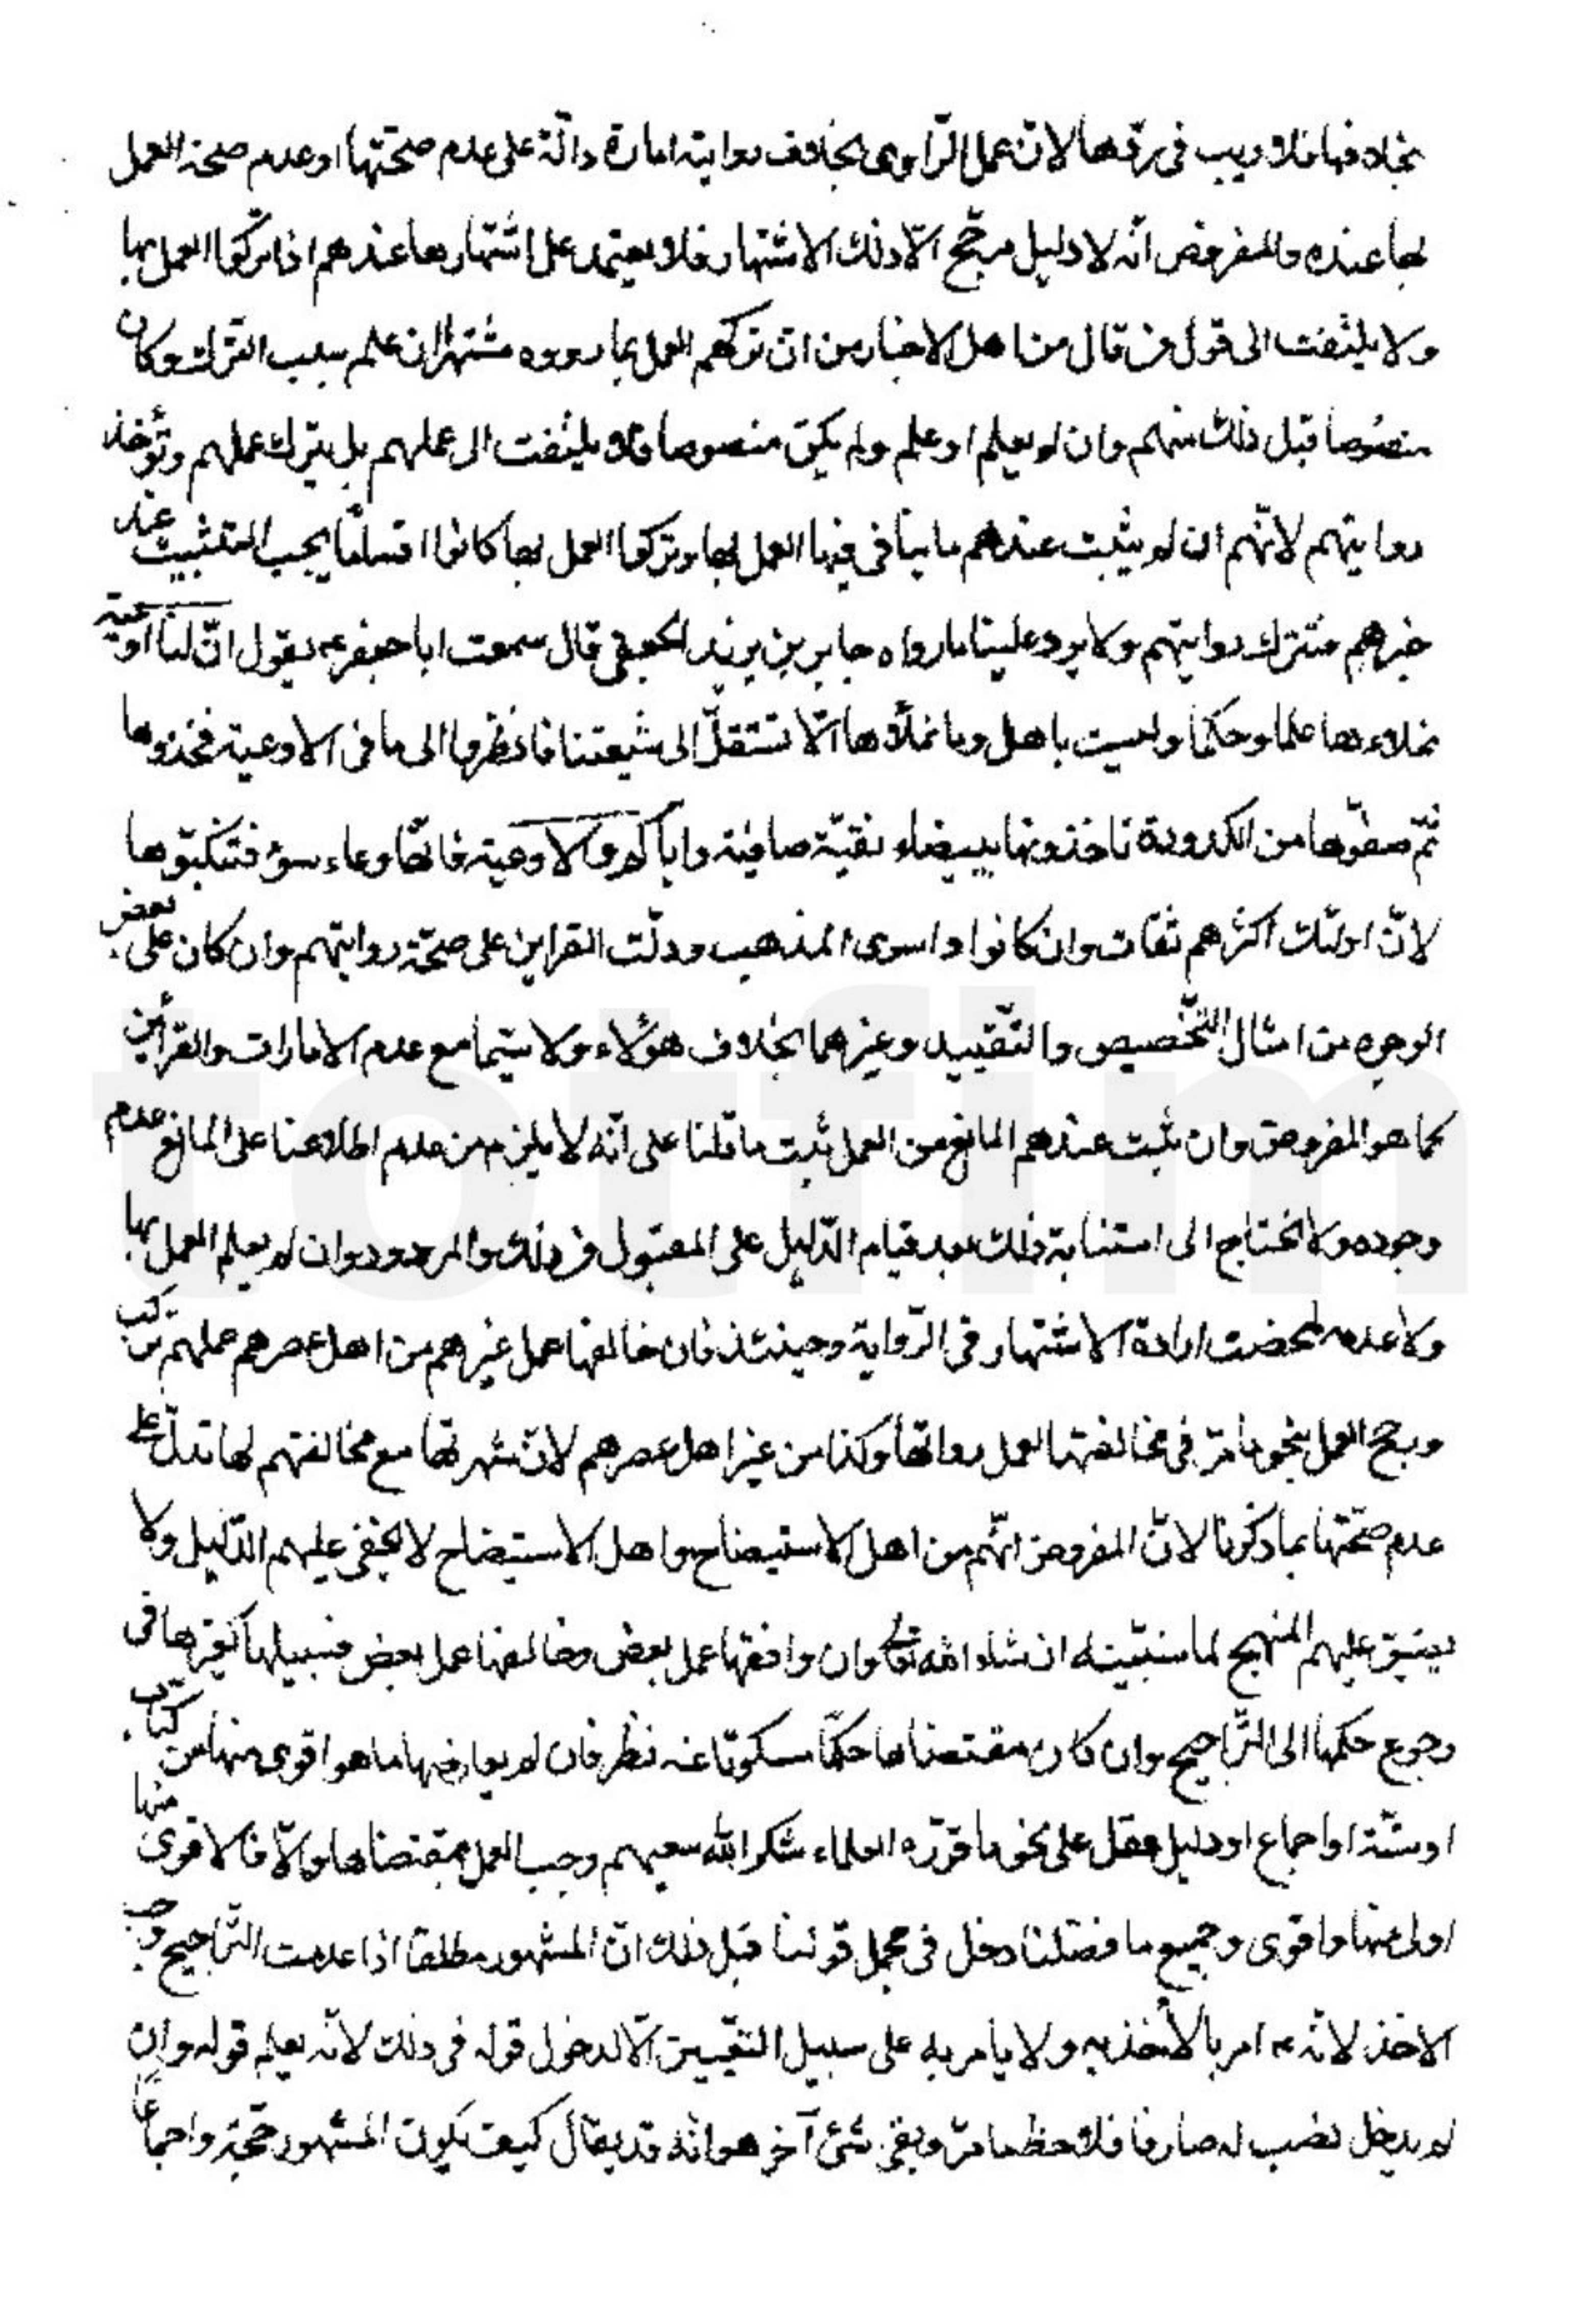 بخلافها فلا ريب في ردّها لانّ عمل الرّاوى بخلاف روايته امارة دالّة على عدم صحّتها او عدم صحة العمل
بها عنده والمفروض انّه لا دليل مرجّح الّا ذلك الاشتهار فلا يعتمد على اشتهارها عندهم اذا تركوا العمل بها
ولا يلتفت الى قول من قال من اهل الاخبار من ان تركهم العمل بما رووه مشتهرا ان علم سبب الترك وكان
منصوصا قبل ذلك منهم وان لم يعلم او علم ولم يكن منصوصا فلا يلتفت الى عملهم بل يترك عملهم وتؤخذ
روايتهم لانّهم ان لم يثبت عندهم ما ينافى فيها العمل بها وتركوا العمل بها كانوا افساقا يجب التثبيت عند
خبرهم فتترك روايتهم ولا يرد علينا ما رواه جابر بن يزيد الجعفى قال سمعت ابا جعفر ع يقول انّ لنا اوعية
نملاءها علما وحكما وليست باهل وما نملأها الّا لتنقل الى شيعتنا فانظروا الى ما فى الاوعية فخذوها
ثمّ صفّوها من الكدورة تاخذونها بيضاء نقيّة صافية واياكم والاوعية فانّها وعاء سوء فتنكبّوها
لانّ اولئك اكثرهم ثقات وان كانوا واسوى المذهب ودلّت القراين على صحّة روايتهم وان كان على بعض
الوجوه من امثال التّخصيص والتّقييد وغيرهما بخلاف هؤلاء ولا سيّما مع عدم الامارات والقرأين
كما هو المفروض وان ثبت عندهم المانع من العمل ثبت ما قلنا على انّه لا يلزم من عدم اطلاعنا على المانع عدم
وجوده ولا نحتاج الى استنابة ذلك بعد قيام الدّليل على المقبول من ذلك والمردود وان لم يعلم العمل بها
ولا عدمه لمحضت ارادة الاشتهار فى الرّواية وحينئذ فان خالفها عمل غيرهم من اهل عصرهم عملهم تركت
ورجح العمل بنحو ما مرّ فى مخالفتها لعمل رواتها وكذا من غير اهل عصرهم لانّ شهرتها مع مخالفتهم لها تدلّ على
عدم صحّتها بما ذكرنا لانّ المفروض انّهم من اهل الاستيضاح واهل الاستيضاح لا يخفى عليهم الدّليل ولا
يضيق عليهم المنهج لما سنبيّنه ان شاء الله تعالى وان وافقها عمل بعض وخالفها عمل بعض فسبيلها كغيرها فى
رجوع حكمها الى التّراجيح وان كان مقتضاها حكمّا مسكوتا عنه نظر فان لم يعارضها ما هو اقوى منها من كتاب
او سنّة او اجماع او دليل عقل على نحو ما قرّره العلماء شكر الله سعيهم وجب العمل بمقتضاها والّا فالاقوى منها
اولى منها واقوى وجميع ما فصّلنا دخل فى مجمل قولنا قبل ذلك انّ المشهور مطلقا اذا عدمت التّراجيح وجب
الاخذ لانّه ع امر بالأخذ به ولا يأمر به على سبيل التعّيين الّا لدخول قوله فى ذلك لانّه يعلم قوله وان
لم يدخل نصب له صارفا فلاحظ ما مرّ وبقى شئ آخر هو انّه قد يقال كيف يكون المشهور حجّة واجماعا